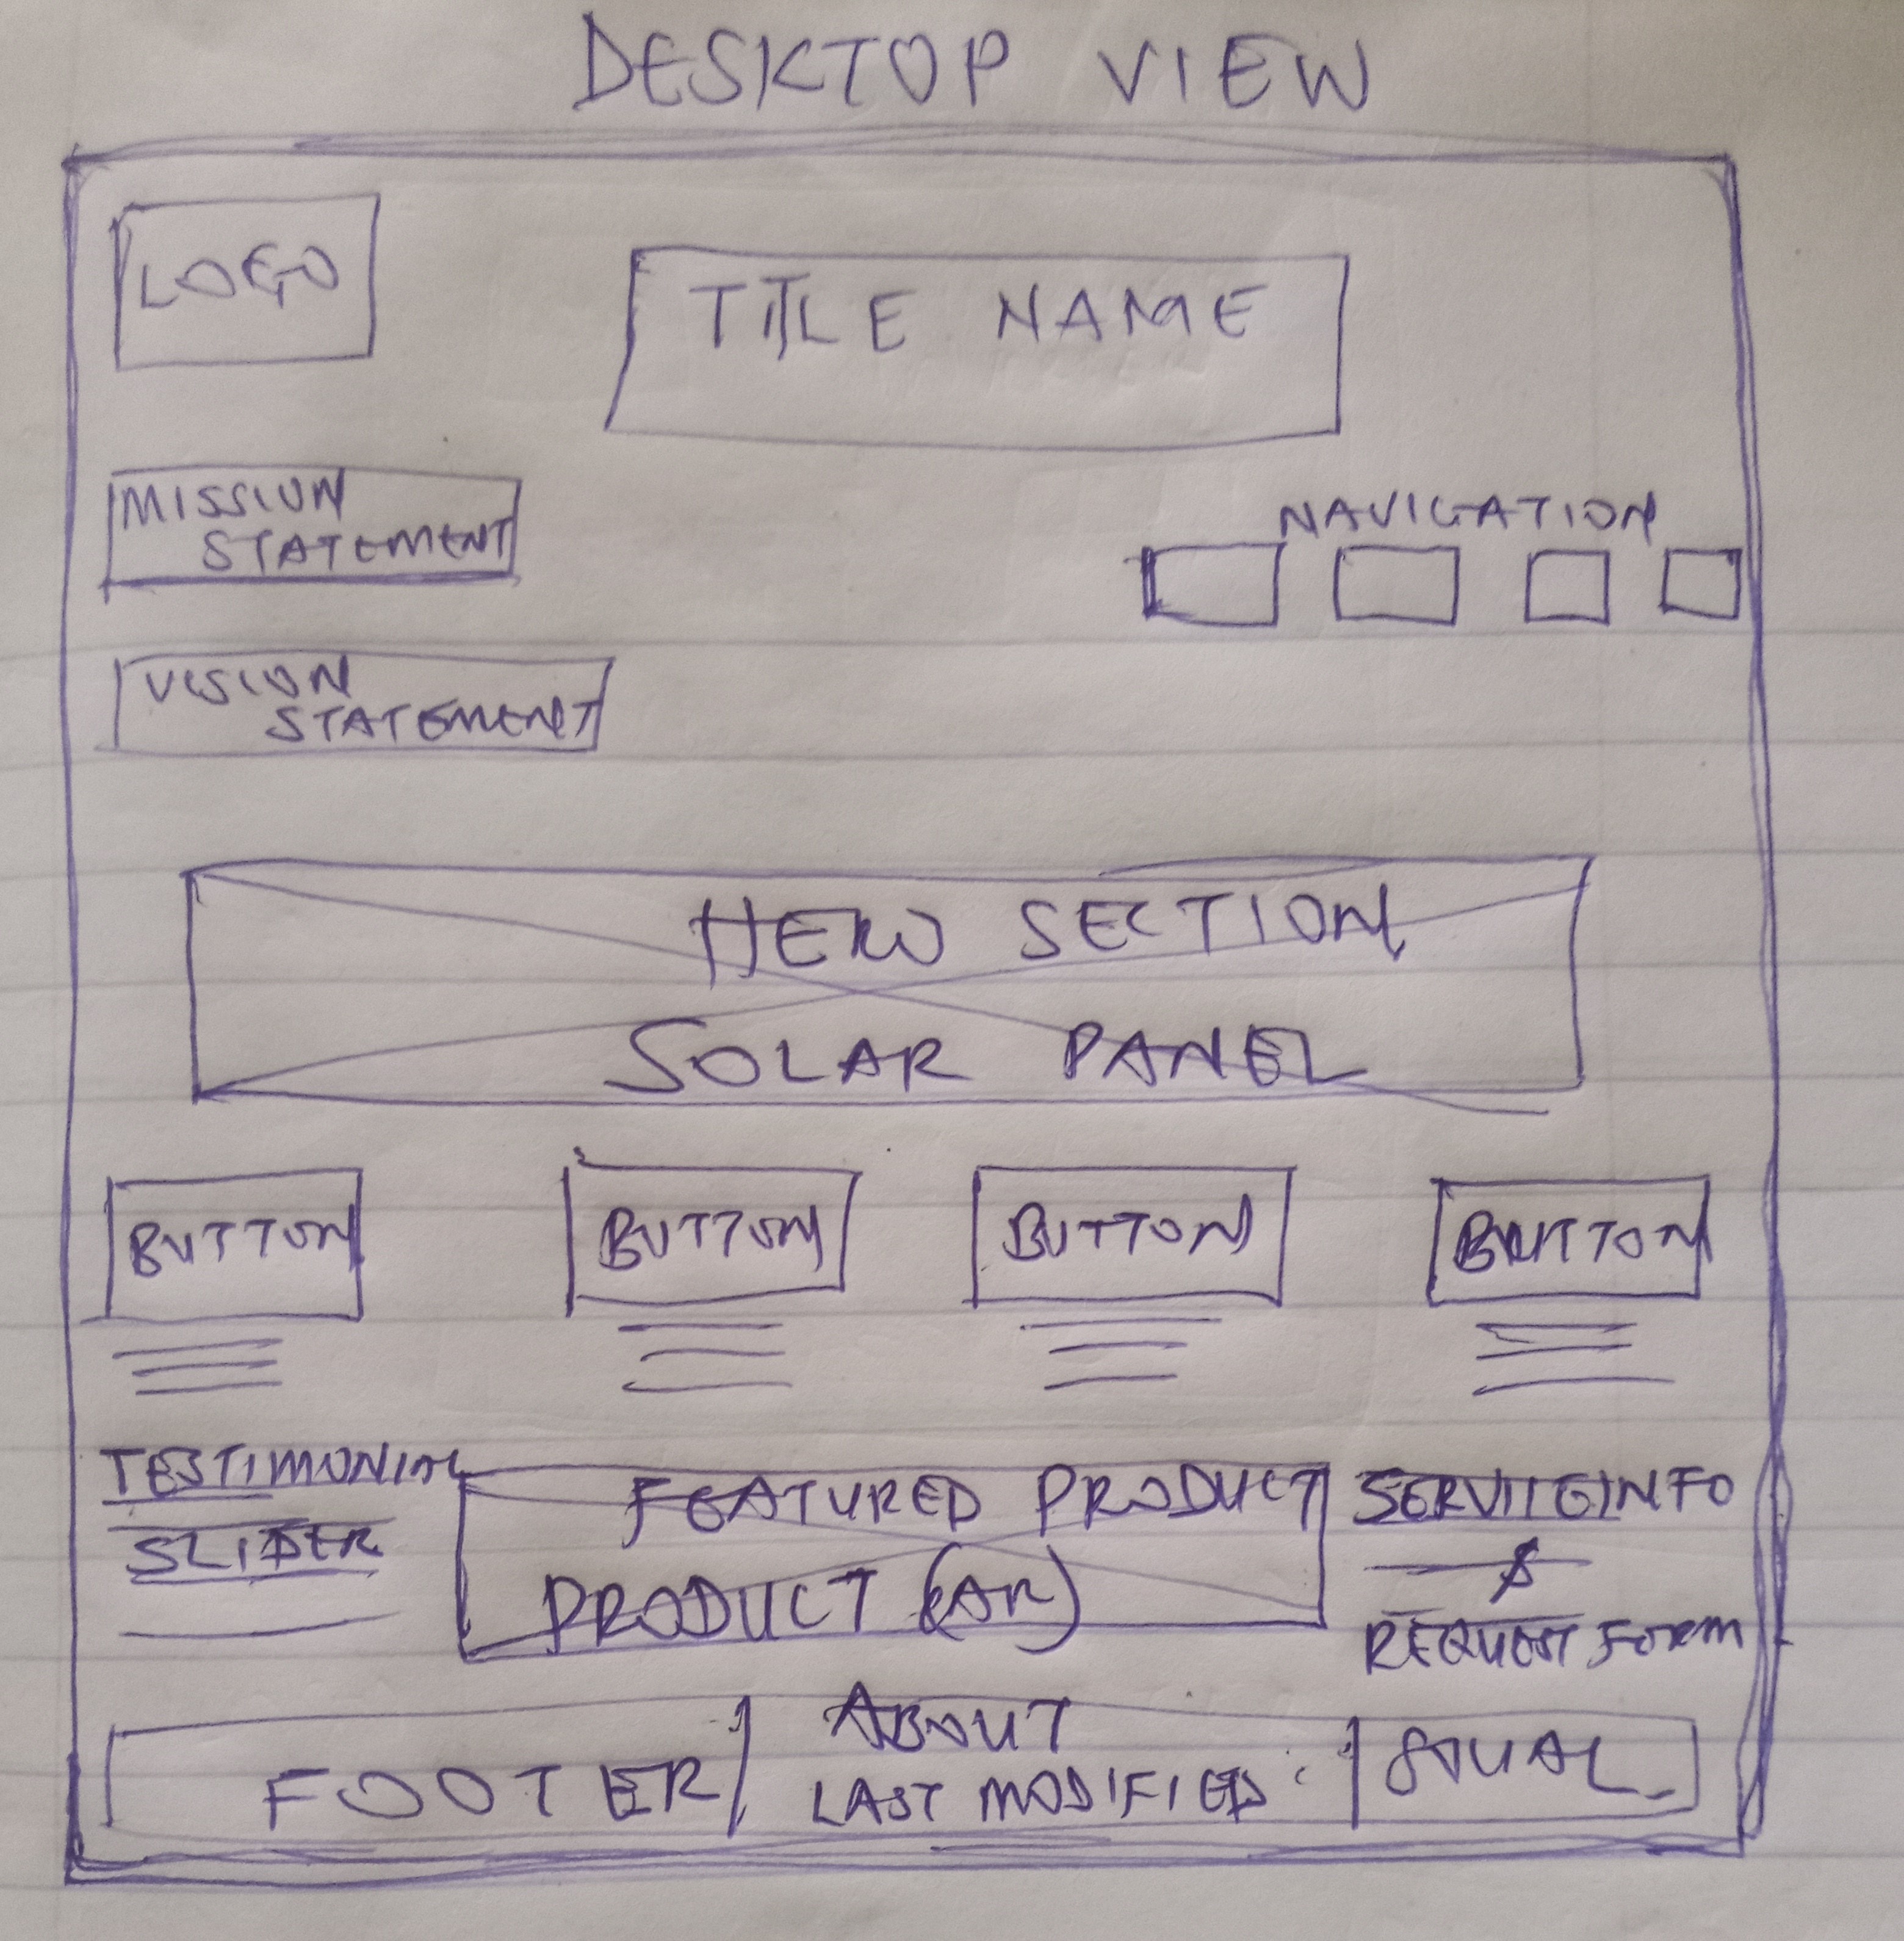 DESKTOP VIEW
LOGO
TITLE NAME
MISSION
STATEMENT
NAVIGATION
VISION
STATEMENT
HERO SECTION
SOLAR PANEL
BUTTON BUTTON BUTTON BUTTON
TESTIMONIAL
SLIDER
FEATURED PRODUCT
PRODUCT
SERVICE INFO
&
REQUEST FORM
FOOTER
ABOUT
LAST MODIFIED